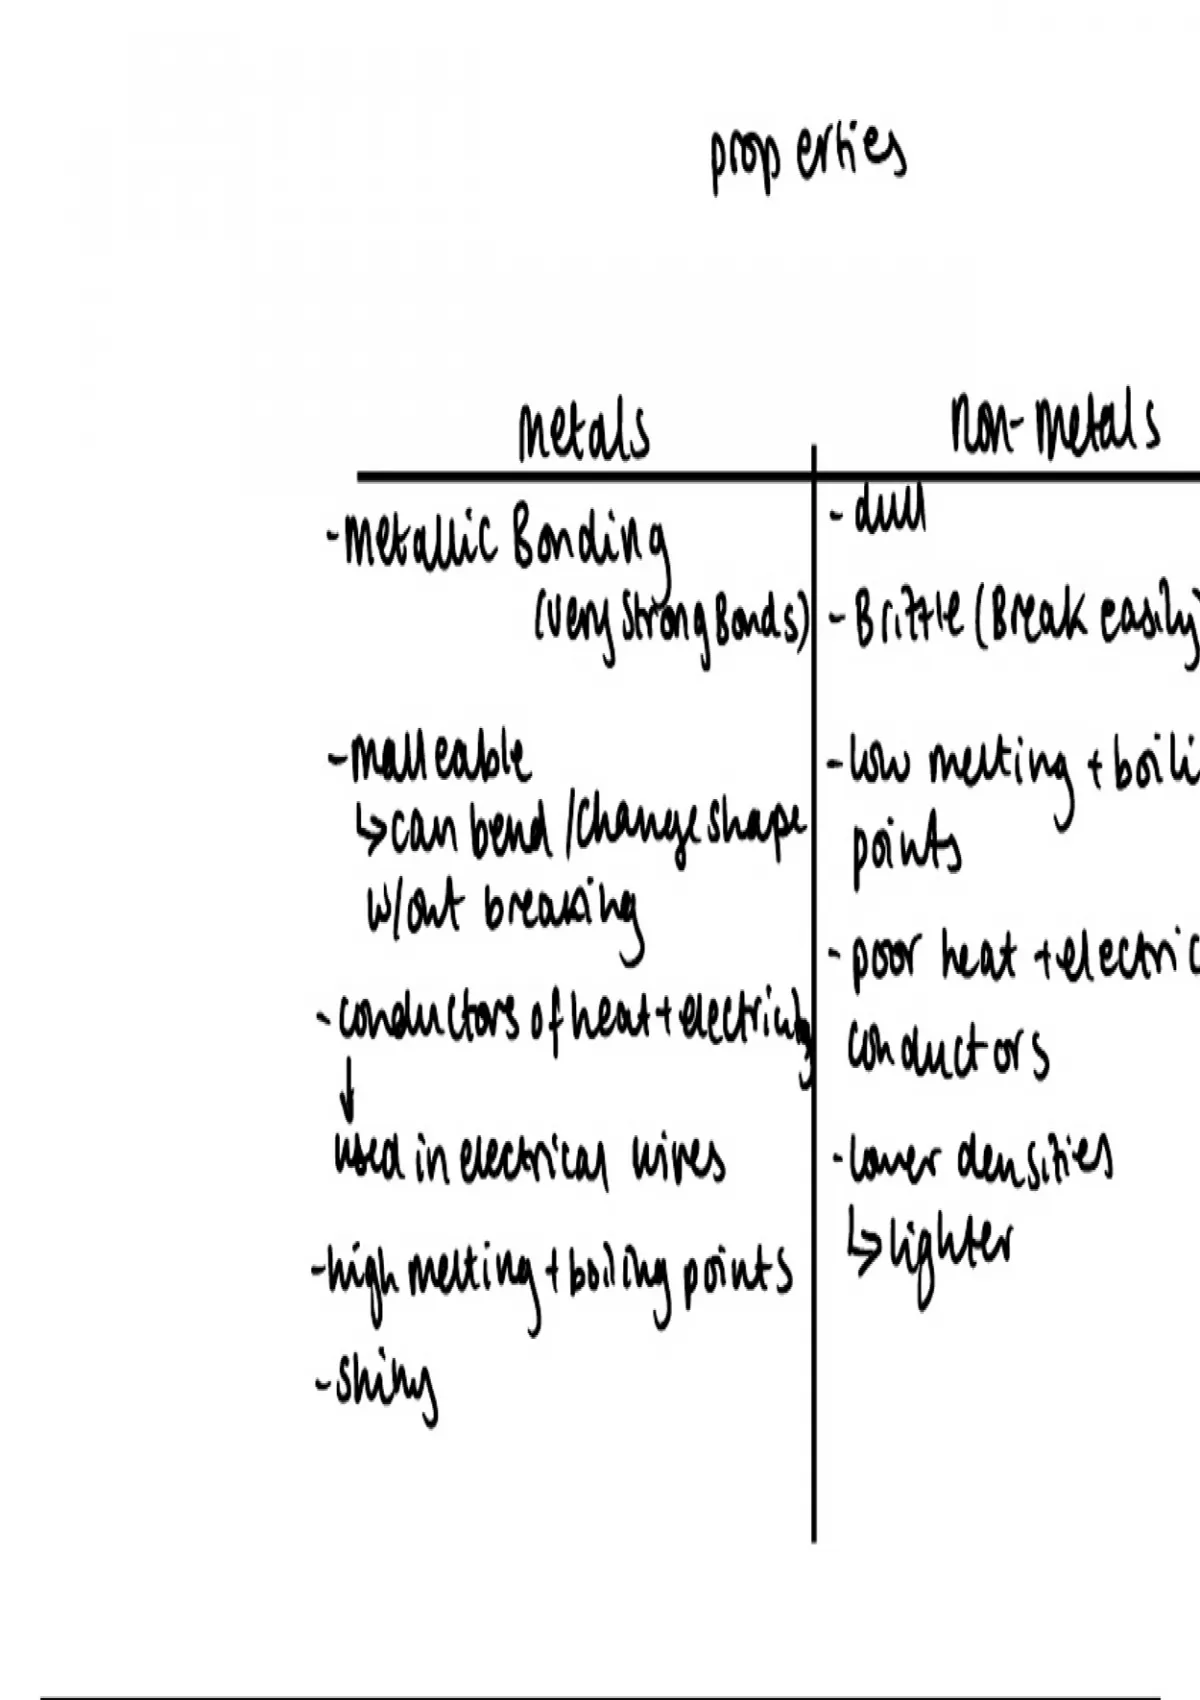 properties
Metals
- Metallic Bonding
(very Strong Bonds)
- Malleable
↳ can bend / Change shape
w/out breaking
- conductors of heat + electricity
↓
used in electrical wires
- high melting + boiling points
- shiny
Non-Metals
- dull
- Brittle (Break easily)
- low melting + boili
points
- poor heat + electric
conductors
- lower densities
↳ lighter